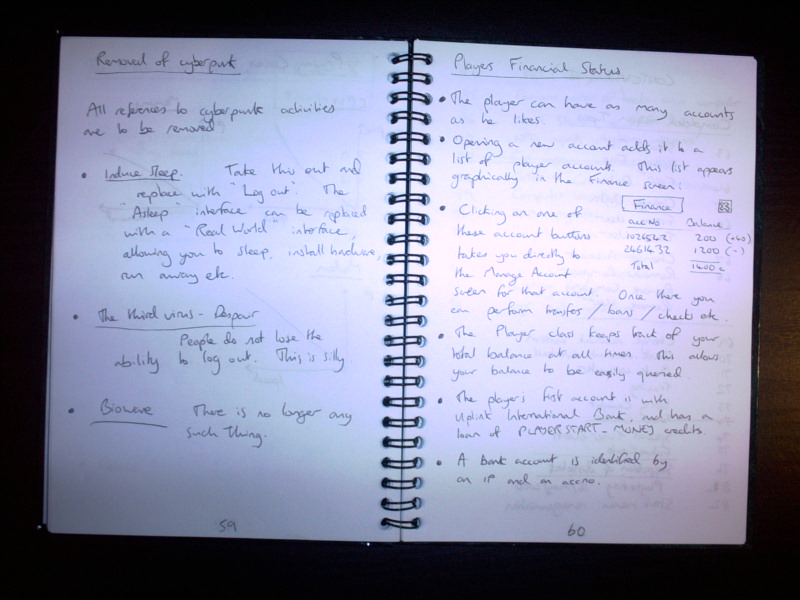 Removal of cyberpunk
All references to cyberpunk activities
are to be removed
• Induce Sleep. Take this out and
replace with "Log out". The
"Asleep" interface can be replaced
with a "Real World" interface,
allowing you to sleep, install hardware,
run away etc.
• The third virus - Despair
People do not lose the
ability to log out. This is silly.
• Biowave There is no longer any
such thing.
59
Players Financial Status
• The player can have as many accounts
as he likes.
• Opening a new account adds it to a
list of player accounts. This list appears
graphically in the Finance screen:
Finance
acc No Balance
1026542 200 (+40)
2461432 1200 (-)
Total 1400 c
• Clicking on one of
these account buttons
takes you directly to
the Manage Account
screen for that account. Once there you
can perform transfers / loans / checks etc.
• The Player class keeps track of your
total balance at all times. This allows
your balance to be easily queried.
• The players first account is with
Uplink International Bank, and has a
loan of PLAYERSTART_MONEY credits.
• A bank account is identified by
an IP and an accno.
60